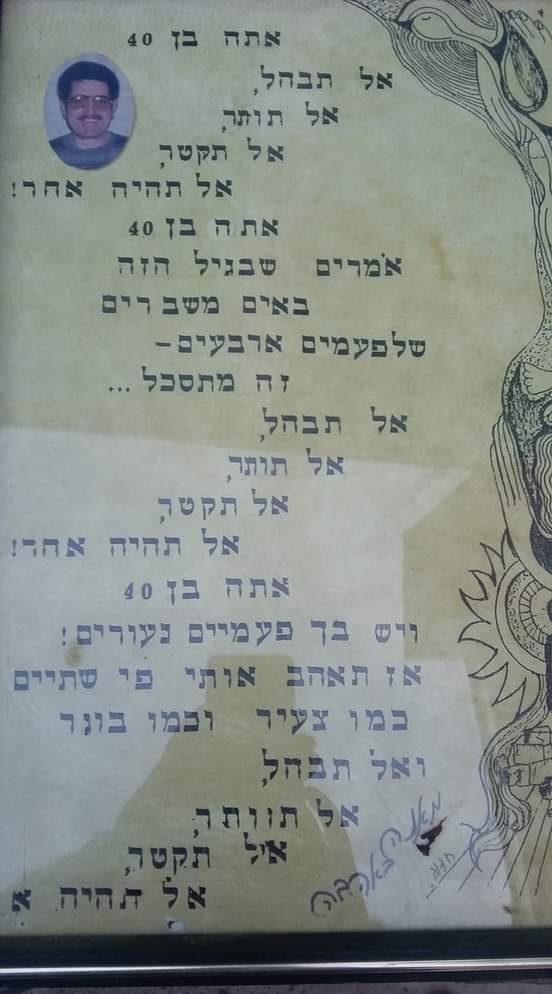 אתה בן 40
אל תבהל,
אל תותר,
אל תקטר,
אל תהיה אחר!
אתה בן 40
אמרים שבגיל הזה
באים משברים
שלפעמים ארבעים-
זה מתסכל...
אל תבהל,
אל תותר,
אל תקטר,
אל תהיה אחר!
אתה בן 40
ויש בך פעמיים נעורים!
אז תאהב אותי פי שתיים
כמו צעיר וכמו בוגר
ואל תבהל,
אל תוותר,
אל תקטר,
אל תהיה א
באהבה